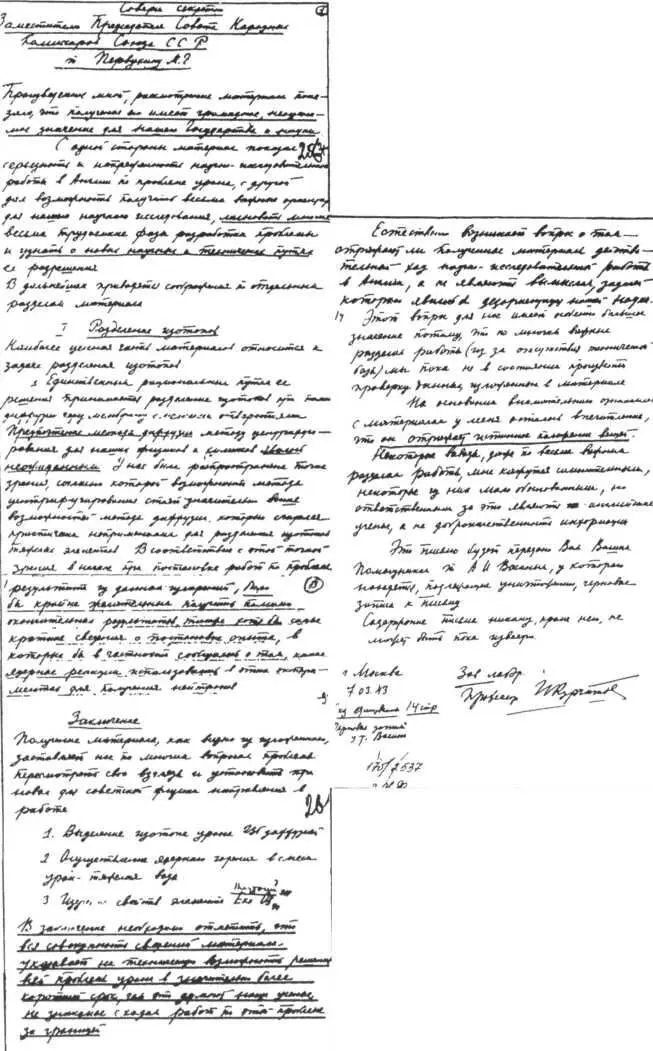 Соверш. секретно
Заместителю Председателя Совета Народных
Комиссаров Союза ССР
т. Первухину М.Г.
Произведенное мной рассмотрение материала пока-
зало, что получение его имеет громадное, неоцени-
мое значение для нашего Государства и науки.
С одной стороны материал показал
серьезность и напряженность научно-исследовательской
работы в Англии по проблеме урана, с другой
дал возможность получить весьма важные ориентиры
для нашего научного исследования, миновать многие
весьма трудоемкие фазы разработки проблемы
и узнать о новых научных и технических путях
ее разрешения
В дальнейшем приведены соображения по отдельным
разделам материала
I Разделение изотопов
Наиболее ценная часть материалов относится к
задаче разделения изотопов
1 Единственным рациональным путем ее
решения принимается разделение изотопов при помощи
диффузии через мембрану с мелкими отверстиями
Предпочтение метода диффузии методу центрифуги-
рования для наших физиков и химиков явилось
неожиданным. У нас была распространена точка
зрения, согласно которой возможности метода
центрифугирования стоят значительно выше
возможностей метода диффузии, который считался
практически неприменимым для разделения изотопов
тяжелых элементов В соответствии с этой точкой
зрения в начале при постановке работ по проблеме
результаты из данного
было
бы крайне желательным получить
окончательных результатов
самые
краткие сведения о постановке опыта, в
которых бы в частности сообщалось о том, какие
ядерные реакции использовались в этих экспери-
ментах для получения нейтронов
Заключение
Получение материала, как видно из изложенного,
заставляет нас по многим вопросам проблемы
пересмотреть свои взгляды и установить три
новых для советской физики направления в
работе
1. Выделение изотопа урана 235 диффузией
2 Осуществление ядерного горения в смеси
уран-тяжелая вода
3 Изучение свойств элемента Eka
В заключение необходимо отметить, что
вся совокупность сведений материала
указывает на техническую возможность решения
всей проблемы урана в значительно более
короткий срок, чем это думают наши ученые,
не знакомые с ходом работ по этой проблеме
за границей
Естественно возникает вопрос о том
отражает ли полученные материалы действи-
тельный ход научно-исследовательской работы
в Англии, а не являются вымыслом, задачей
которого явилась бы дезориентация нашей науки.
Этот вопрос для нас имеет особенно большое
значение потому, что по многим важным
разделам работы (из за отсутствия технической
базы) мы пока не в состоянии произвести
проверку данных, изложенных в материале
На основании внимательного ознакомления
с материалом у меня осталось впечатление,
что он отражает истинное положение вещей.
Некоторые выводы, даже по весьма важным
разделам работы, мне кажутся сомнительными,
некоторые из них мало обоснованными, но
ответственными за это являются английские
ученые, а не доброкачественность информации
Это письмо будет передано Вам Вашим
Помощником т. А.И. Васиным, у которого
находятся, подлежащие уничтожению, черновые
записи к письму
Содержание письма никому, кроме него, не
может быть пока известно.
г. Москва
7.03.43
Зав. лабор.
Профессор И Курчатов
14 стр
Черновые записи
у т. Васина